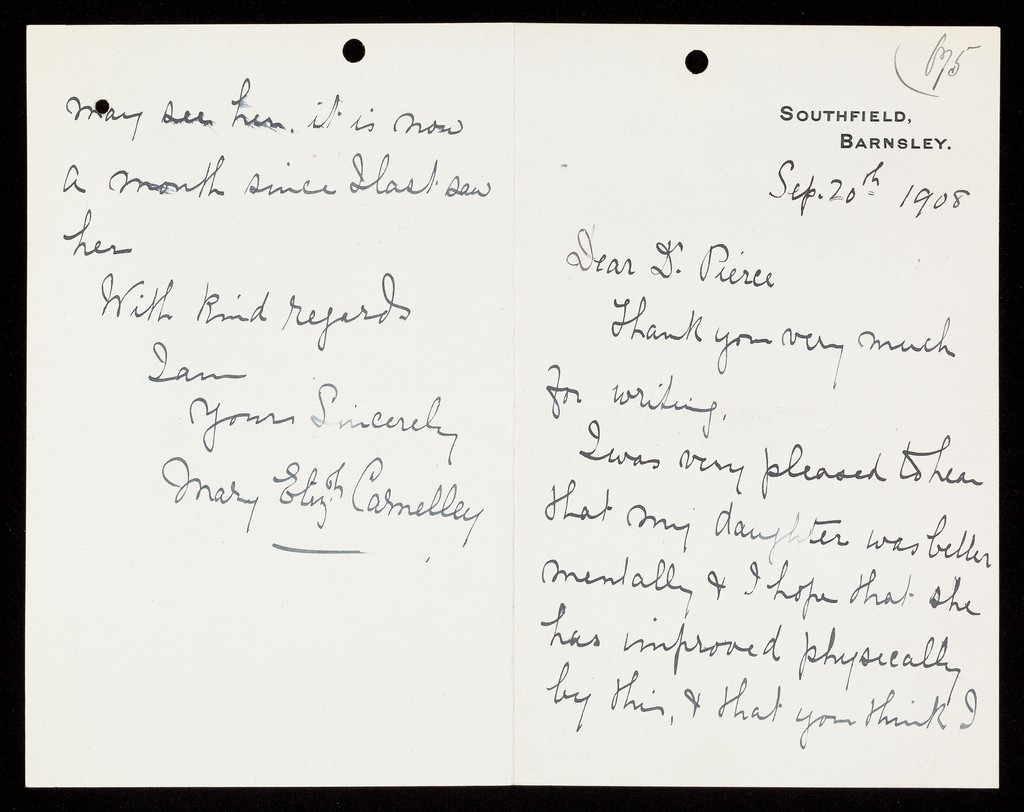 675
SOUTHFIELD,
BARNSLEY.
Sep. 20th 1908
Dear Dr. Pierce
Thank you very much
for writing.
I was very pleased to hear
that my daughter was better
mentally & I hope that she
has improved physically
by this, & that you think I
may see her. it is now
a month since I last saw
her
With kind regards
I am
Yours Sincerely
Mary Elizth Carnelley